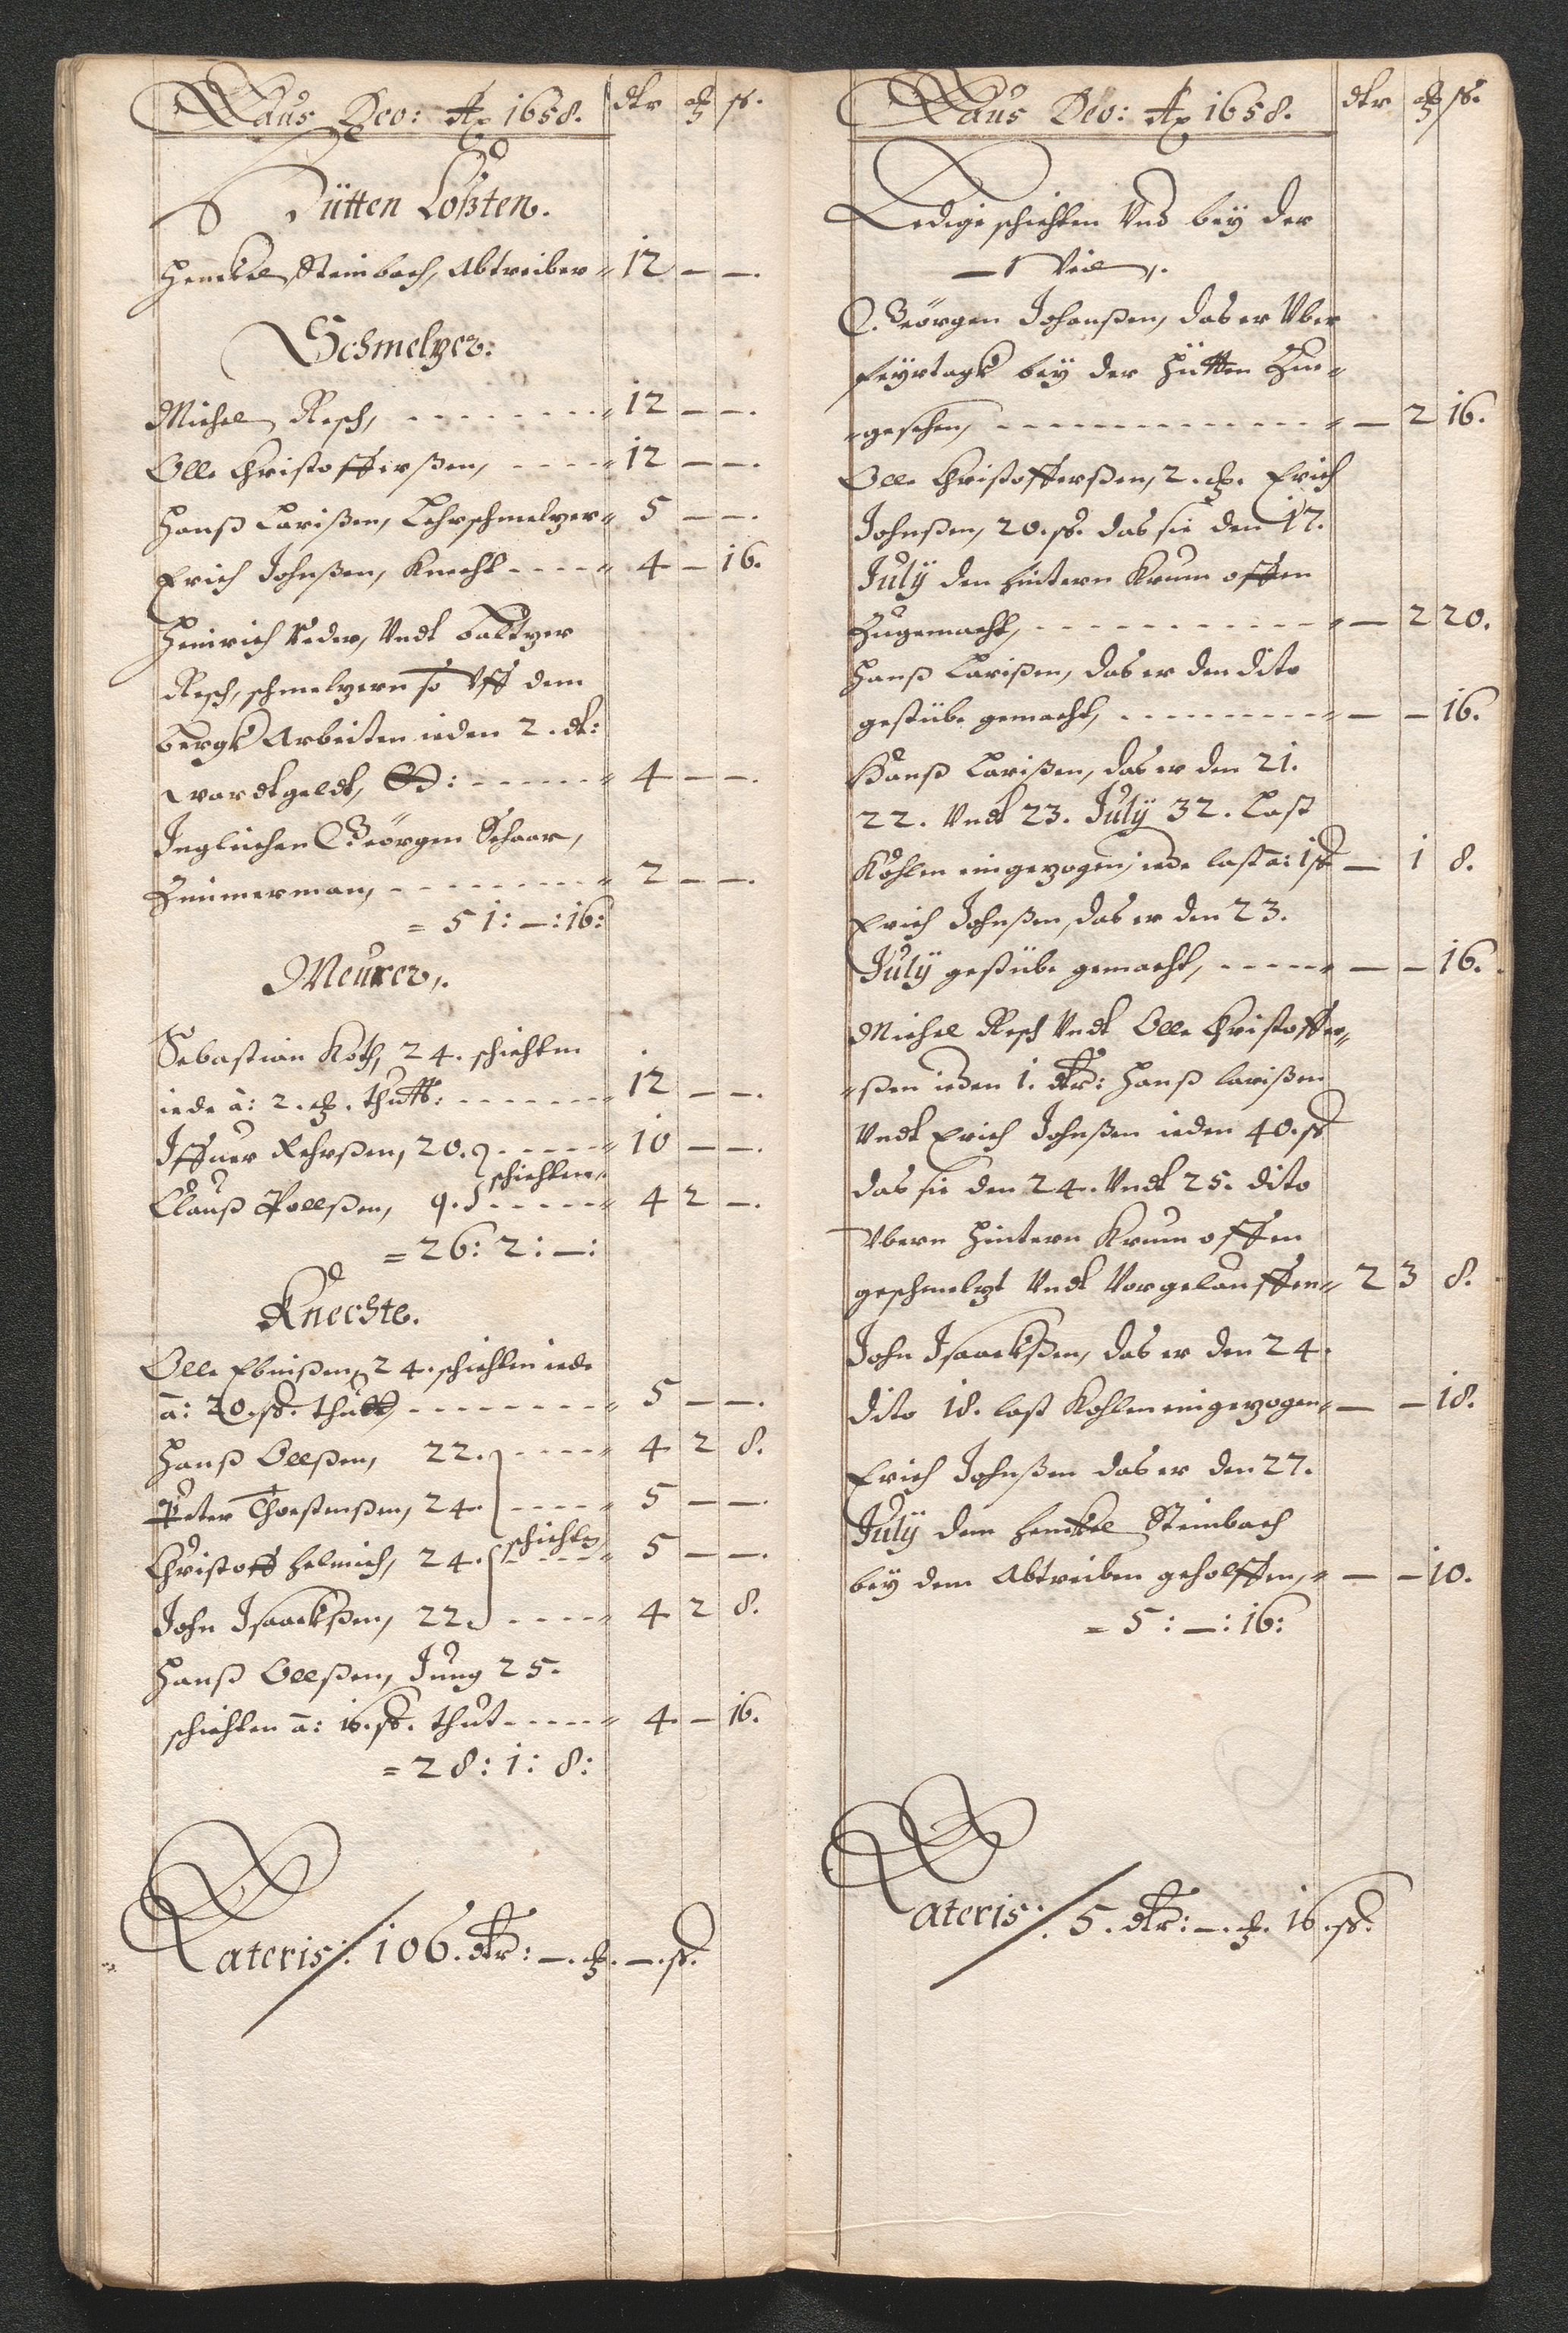 Laus Deo: Ao 1658. dlr ort ß.
Hütten Coßten.
Henckel Steinbach, Abtreiber " 12 — —.
Schmelzer:
Michel Resch, " 12 — —.
Olle Christofferßen, " 12 — —.
Hanß Larißen, Lehrschmelzer " 5 — —.
Erich Johnßen, Knecht " 4 — 16.
Heinrich Veder, Undt Baltzer
Resch, schmelzern so Uff dem
Bergk Arbeiten ieden 2. dlr:
wardtgeldt, " 4 — —.
Ingleichen Geörgen Schaar,
Zimmerman, " 2 — —.
= 51: —: 16:
Meurer,.
Sebastian Koth, 24. schichten
iede à: 2. ort. thutt: " 12 — —.
Iffuer Rehrßen, 20. " 10 — —.
schichten
Clauß Pollßen, 9. " 4 2 —.
= 26: 2: —:
Knechte.
Olle Ebnißen, 24. schichten iede
à: 20. ß. thutt, " 5 — —.
Hanß Ollßen, 22. " 4 2 8.
Peter Thorstenßen, 24. " 5 — —.
Christoff Helmich, 24. schichten " 5 — —.
John Isaackßen, 22. " 4 2 8.
Hanß Ollßen, Jung 25.
schichten à: 16. ß. thut " 4 — 16.
= 28: 1: 8:
Lateris: 106. dlr: —. ort. —. ß.
Laus Deo: Ao 1658. dlr ort ß.
Ledige schichten Und bey der
Weil,.
Geörgen Johanßen, das er Uber
feyrtagk bey der Hütten Zue=
=gesehen, " — 2 16.
Olle Christofferßen, 2. ort. Erich
Johnßen, 20. ß. das sie den 17.
July den hintern Krum offen
Zugemacht, " — 2 20.
Hanß Larißen, das er den dito
gestübe gemacht, " — — 16.
Hanß Larißen, das er den 21.
22. Undt 23. July 32. Last
Kohlen eingezogen, iede last à: 1 ß — 1 8.
Erich Johnßen, das er den 23.
July gestübe gemacht, " — — 16.
Michel Resch Undt Olle Christoffer=
=ßen ieden 1. dlr: Hanß larißen
Undt Erich Johnßen ieden 40. ß
das sie den 24. Undt 25. dito
Ubern hintern Krum offen
geschmelzt Undt Vorgelauffen " 2 3 8.
John Isaackßen, das er den 24.
dito 18. last Kohlen eingezogen " — — 18.
Erich Johnßen das er den 27.
July dem Henckel Steinbach
bey dem Abtreiben geholffen, " — — 10.
= 5: —: 16:
Lateris: 5. dlr: —. ort. 16. ß.